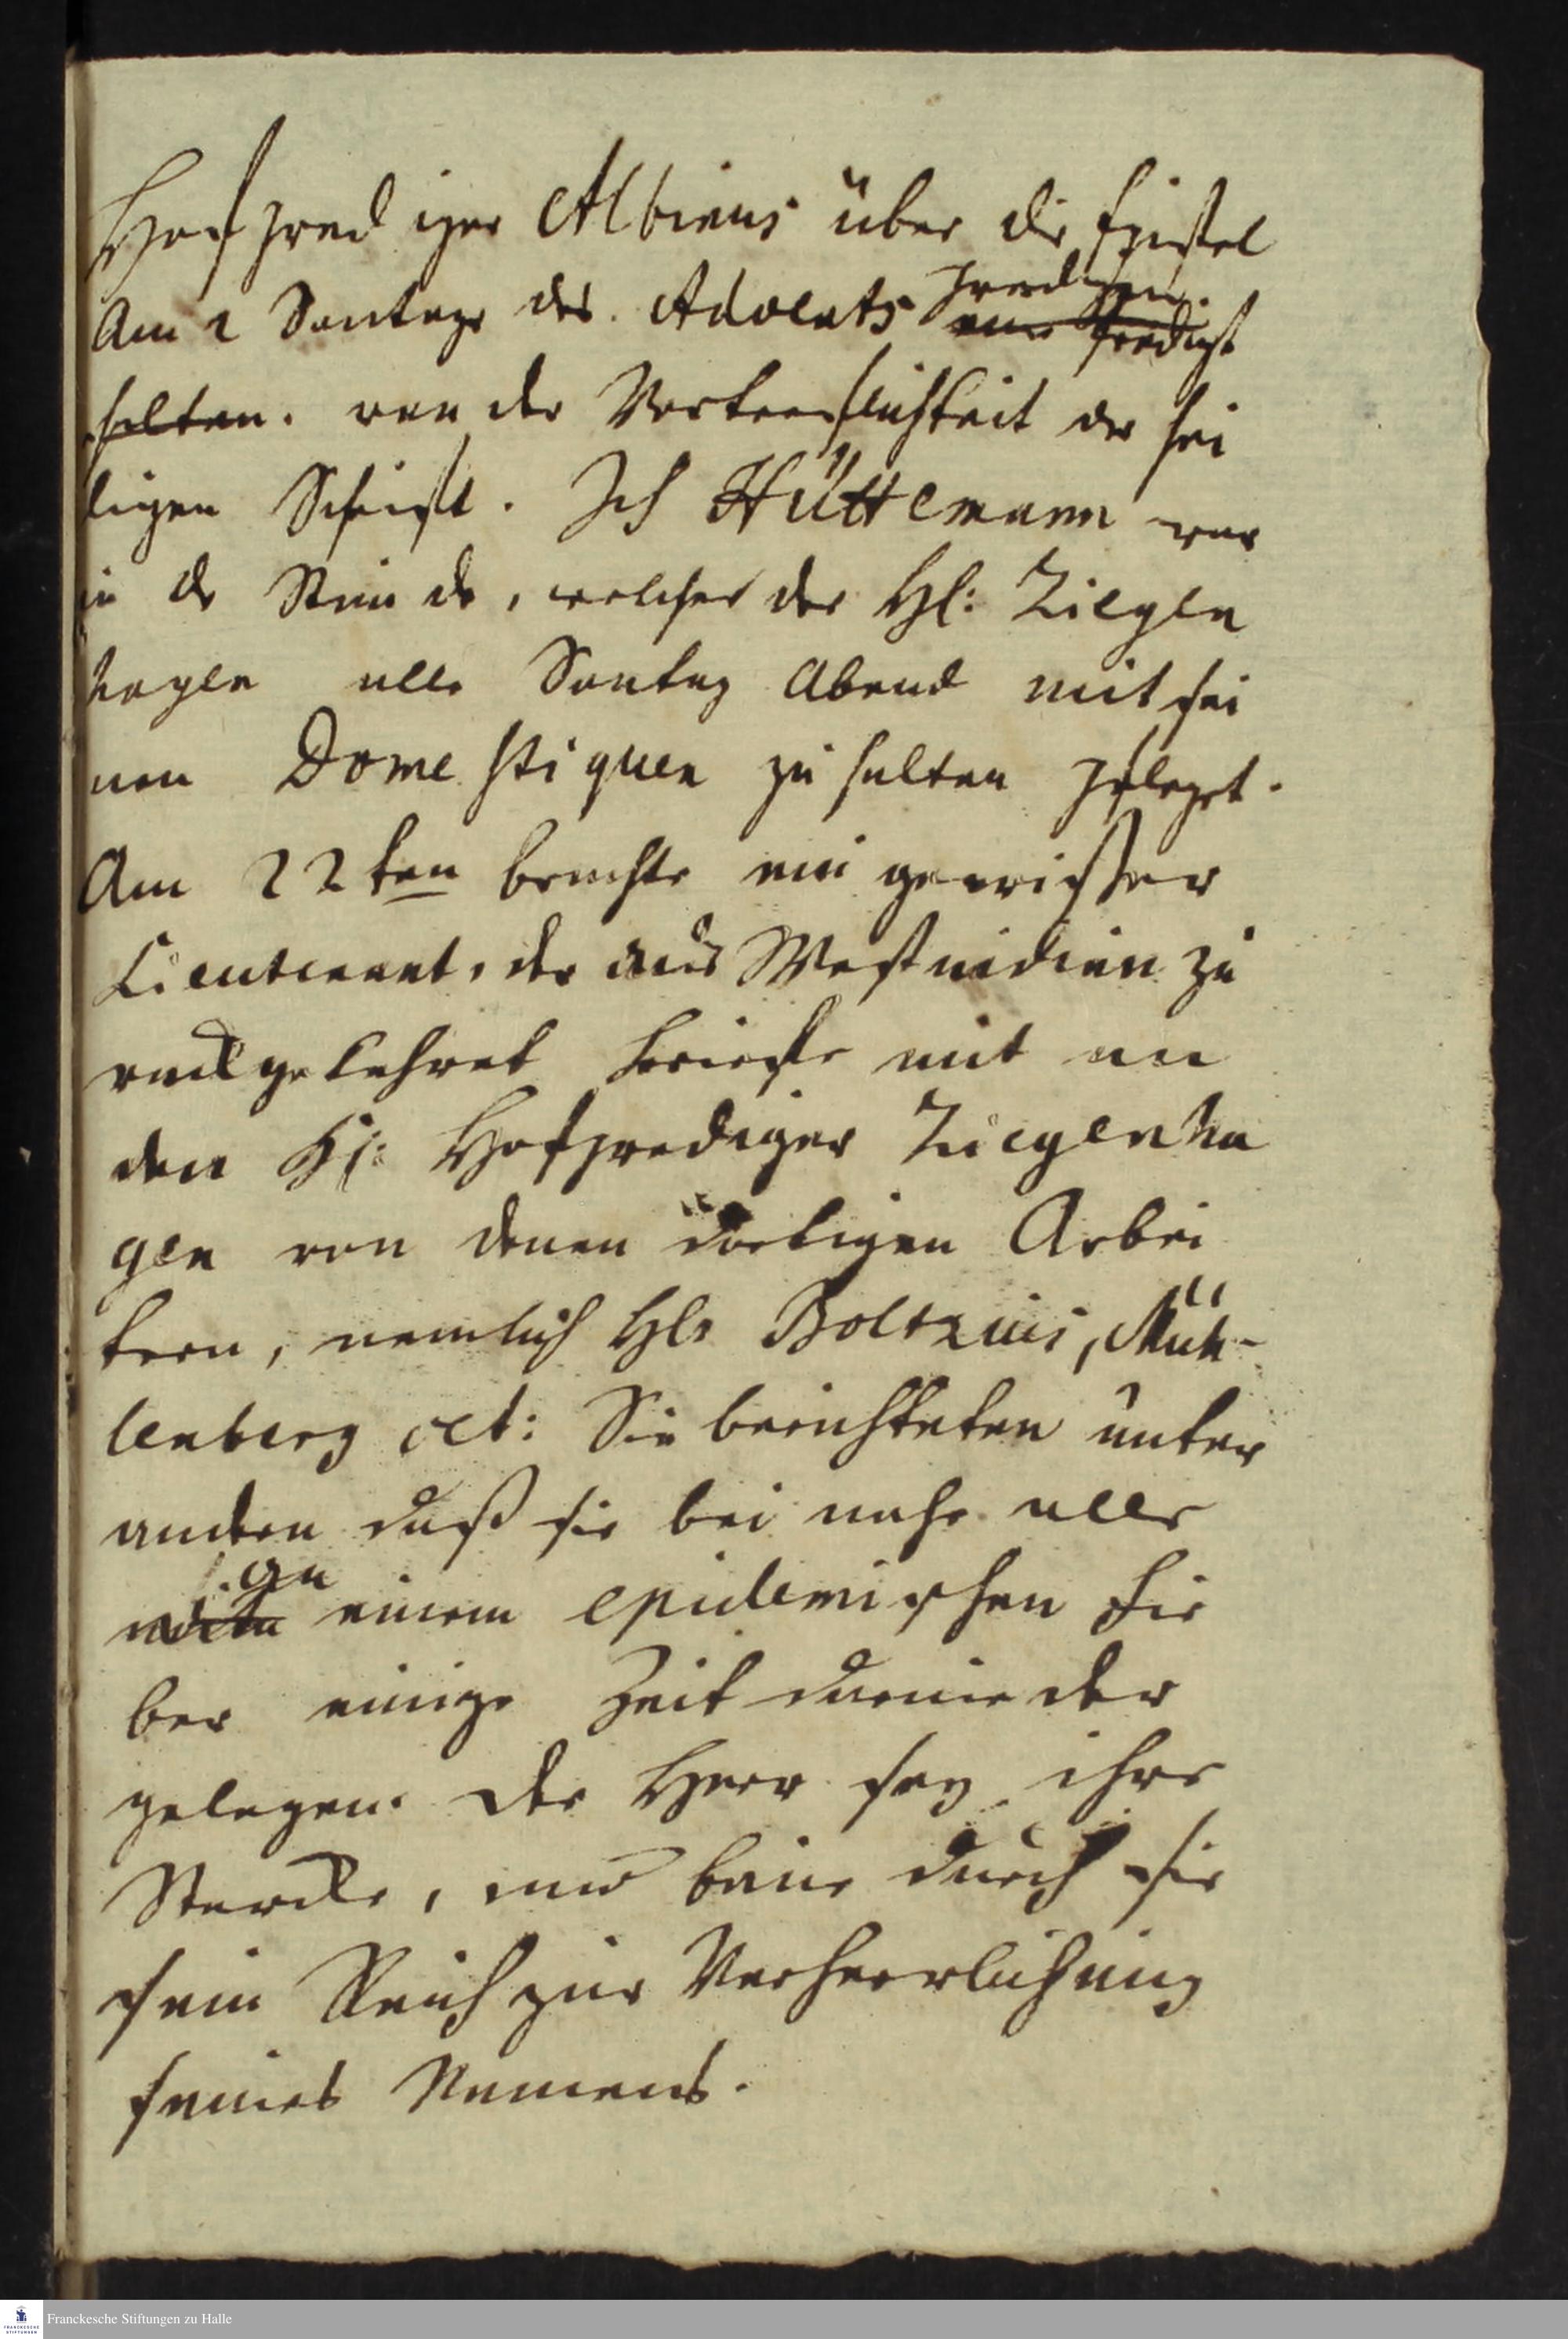 Hofprediger Albinus über die Epistel
Am 2 Sontage des Advents predigen.
eine Predigt
halten. von der Vortreflichkeit der hei
ligen Schrift. Ich Hüttemann war
in der Stunde, welche der Hl: Ziegen
hagen alle Sontag Abend mit sei
nen Domestiquen zu halten pfleget.
Am 22ten brachte ein gewisser
Lieutenant, der aus Westindien zu
rückgekehret Briefe mit an
den H: Hofprediger Ziegenha
gen von denen dortigen Arbei
tern, nemlich Hlr Boltzius, Müh-
lenberg ect: Sie berichteten unter
andern daß sie bei nahe alle
an
einem epidemischen Fie
ber einige Zeit darnieder
gelegen. Der Herr sey ihre
Stercke, und baue durch sie
sein Reich zur Verherrlichung
seines Namens.
Franckesche Stiftungen zu Halle
FRANCKESCHE
STIFTUNGEN